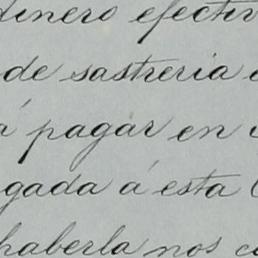 dinero efectiv
de sastreria
á pagar en
gada á esta
haberla nos c